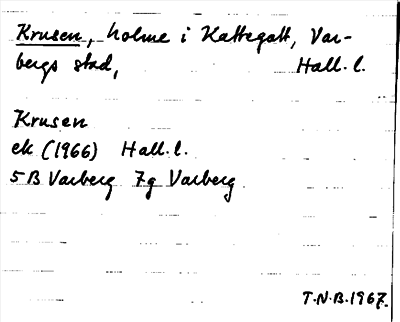 Krusen, holme i Kattegatt, Var-
bergs stad, Hall. l.
Krusen
ek (1966) Hall. l.
5B Varberg 7g Varberg
T.N.B. 1967.